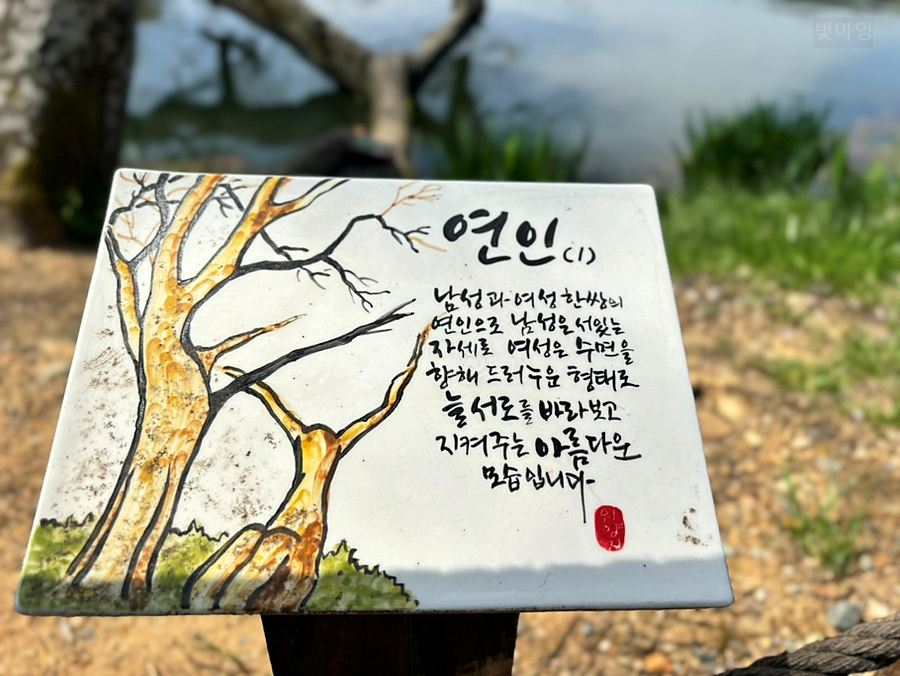 빛아잉
연인(1)
남성과 여성 한쌍의
연인으로 남성은 서있는
자세로 여성은 수면을
향해 드러누운 형태로
늘 서로를 바라보고
지켜주는 아름다운
모습입니다
위양